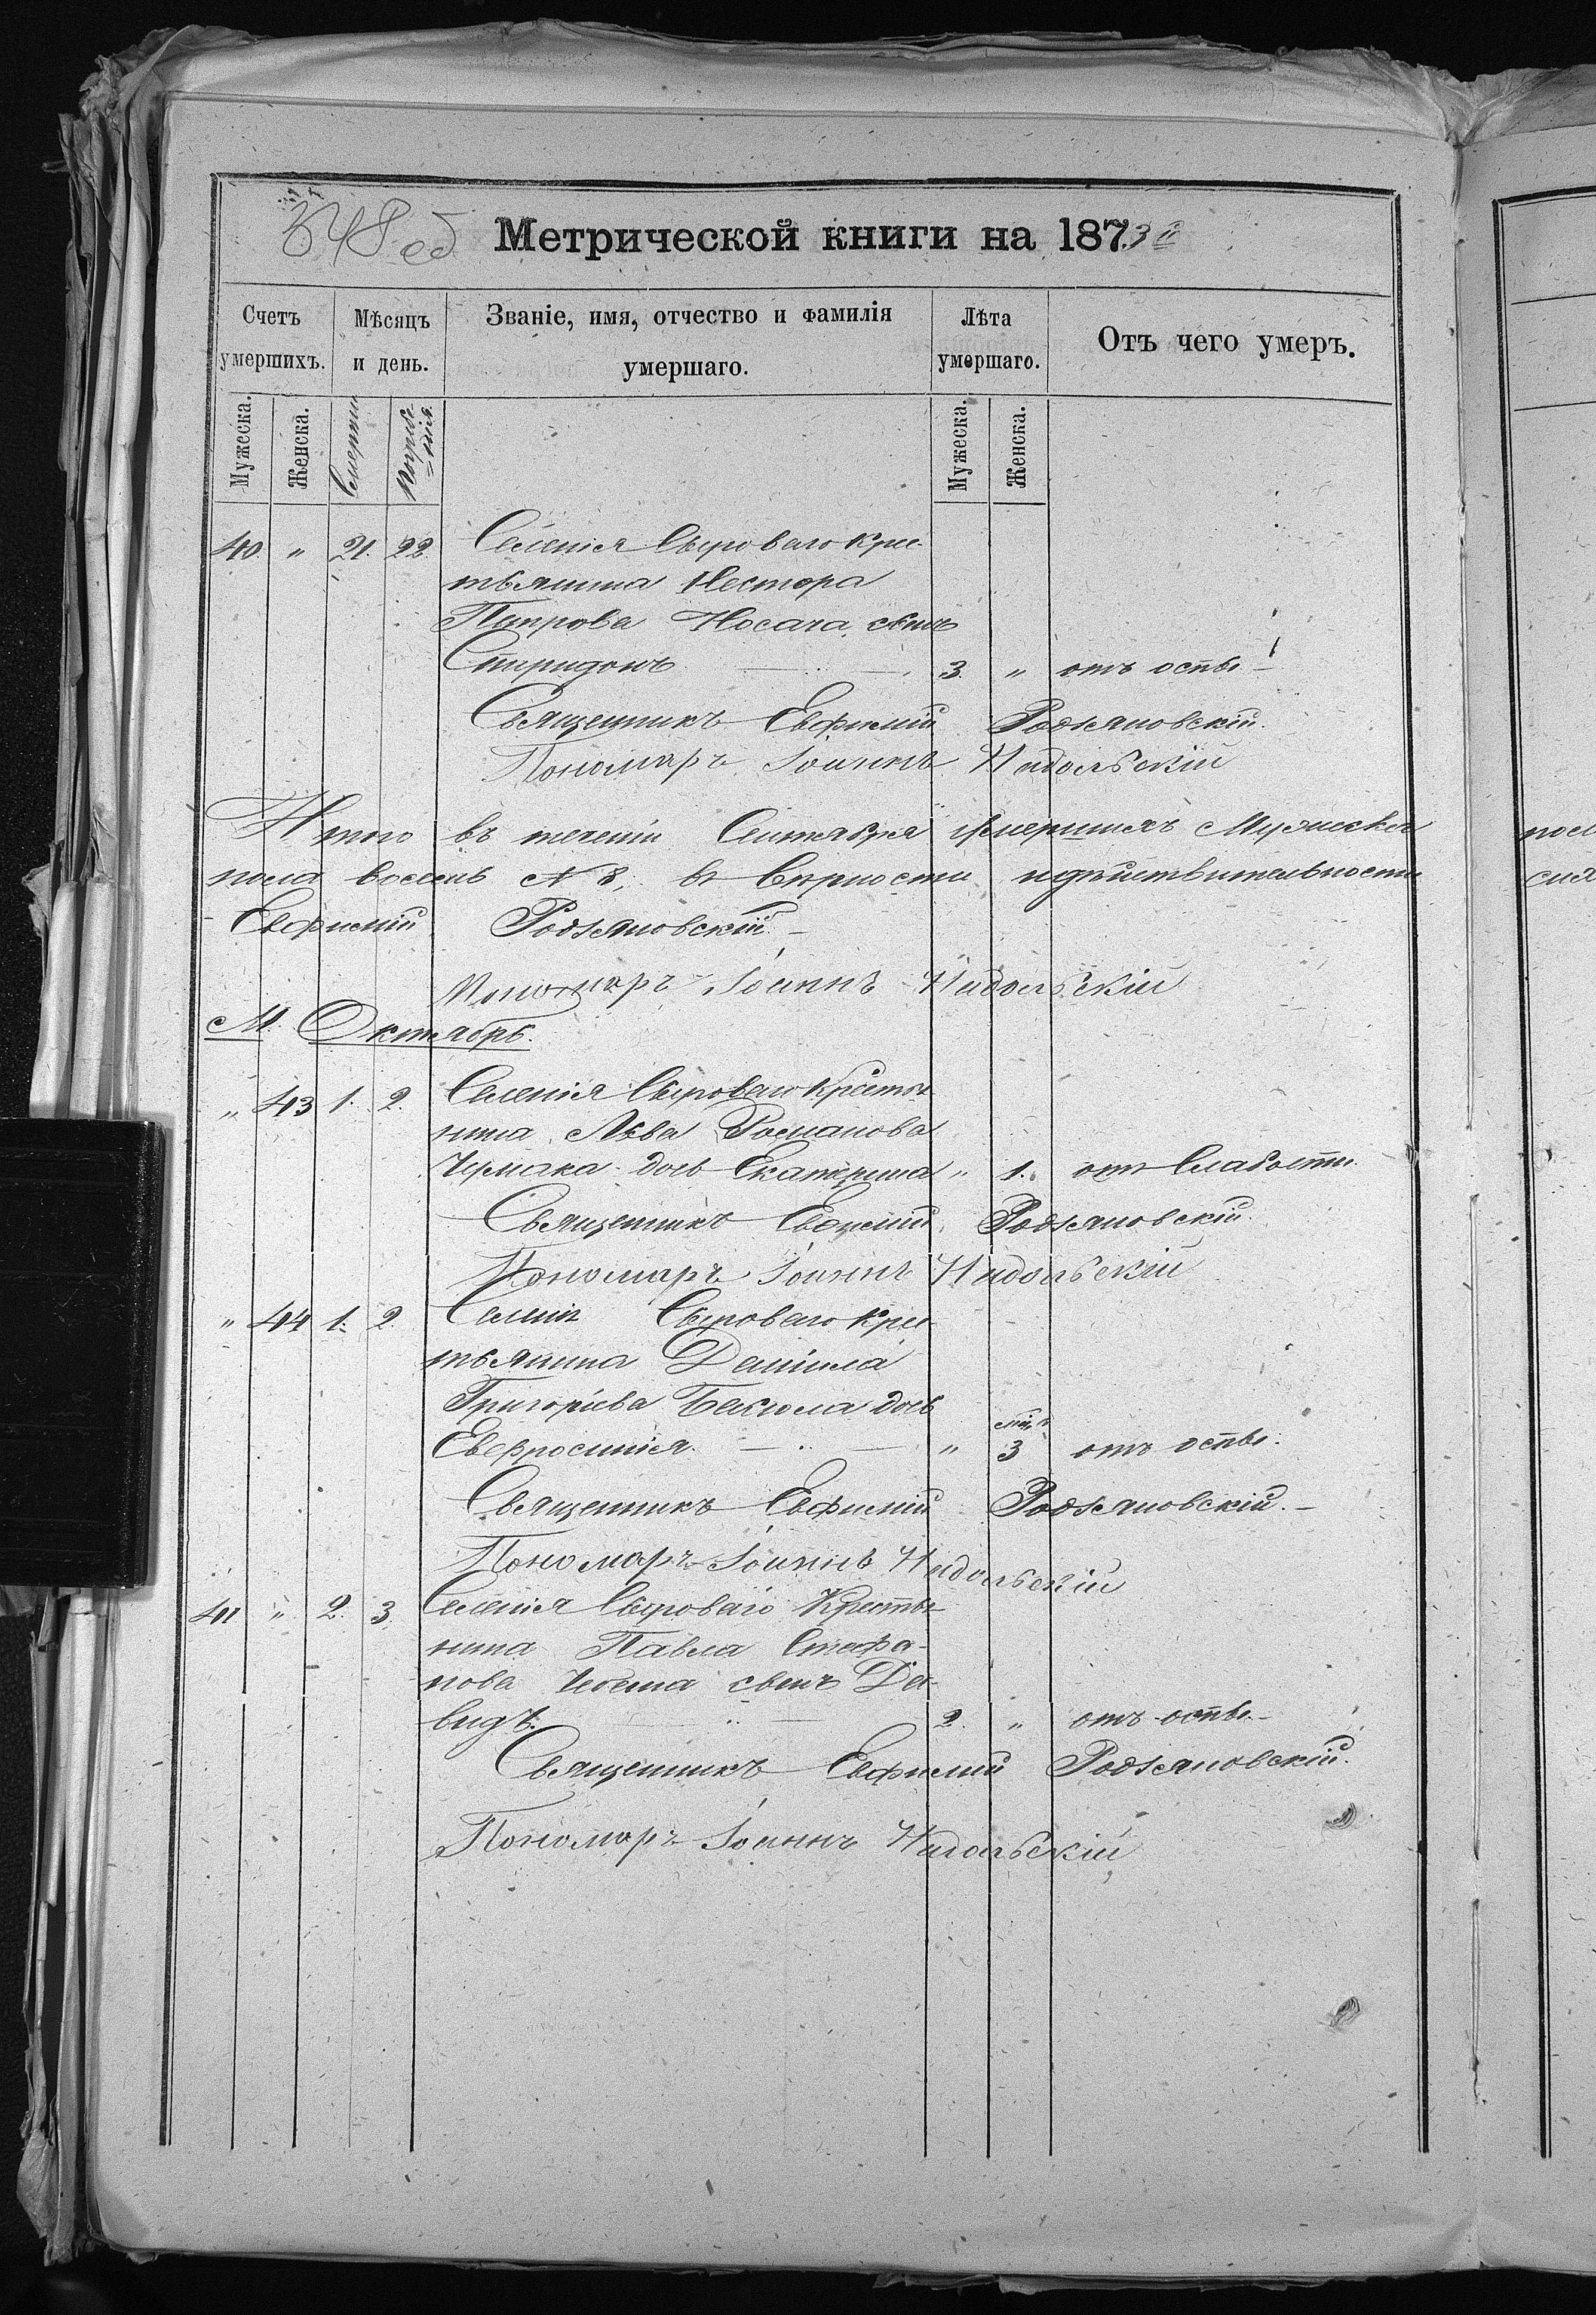 348 об Метрической книги на 1873 й
Счетъ умершихъ. Мѣсяцъ и день. Званіе, имя, отчество и фамилія умершаго. Лѣта умершаго. Отъ чего умеръ.
Мужеска. Женска. Смерти Погребенія. Мужеска. Женска.
40. " 21. 22. Селенія Сыроваго Крес-
тьянина Нестора
Петрова Носача сынъ
Спиридонъ 3. " отъ оспы
Священникъ Евфимій Родзяновскій.
Пономарь Іоаннъ
Итого въ теченіи Сентября умершихъ Мужеска
пола восемь № 8, въ верности и действительности
Евфимій Родзяновскій.
Пономарь Іоаннъ
М. Октябрь.
" 43 1. 2. Селенія Сыроваго Крестья-
нина Льва Романова
Чермака дочь Екатерина " 1. отъ Слабости.
Священникъ Евфимій Родзяновскій.
Пономарь Іоаннъ
" 44 1. 2. Селенія Сыроваго Крес-
тьянина Даніила
Григоріева дочь
Евфросинія " 3 отъ оспы.
Священникъ Евфимій Родзяновскій.
Пономарь Іоаннъ
41 " 2. 3. Селенія Сыроваго Крестья-
нина Павла Стефа-
нова сынъ Да-
видъ. 2. " отъ оспы.
Священникъ Евфимій Родзяновскій.
Пономарь Іоаннъ